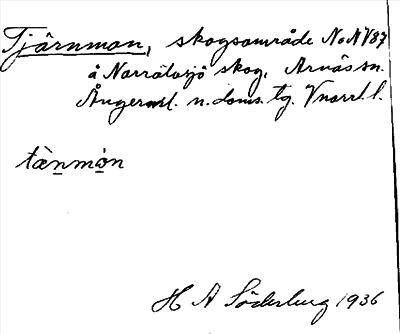 Tjärnmon, skogsområde No A V87
å Norrätasjö skog, Arnäs sn.
Ångerml. n. doms. tg. Vnorrl. l.
tὰn̲mòn
H A Söderburg 1936